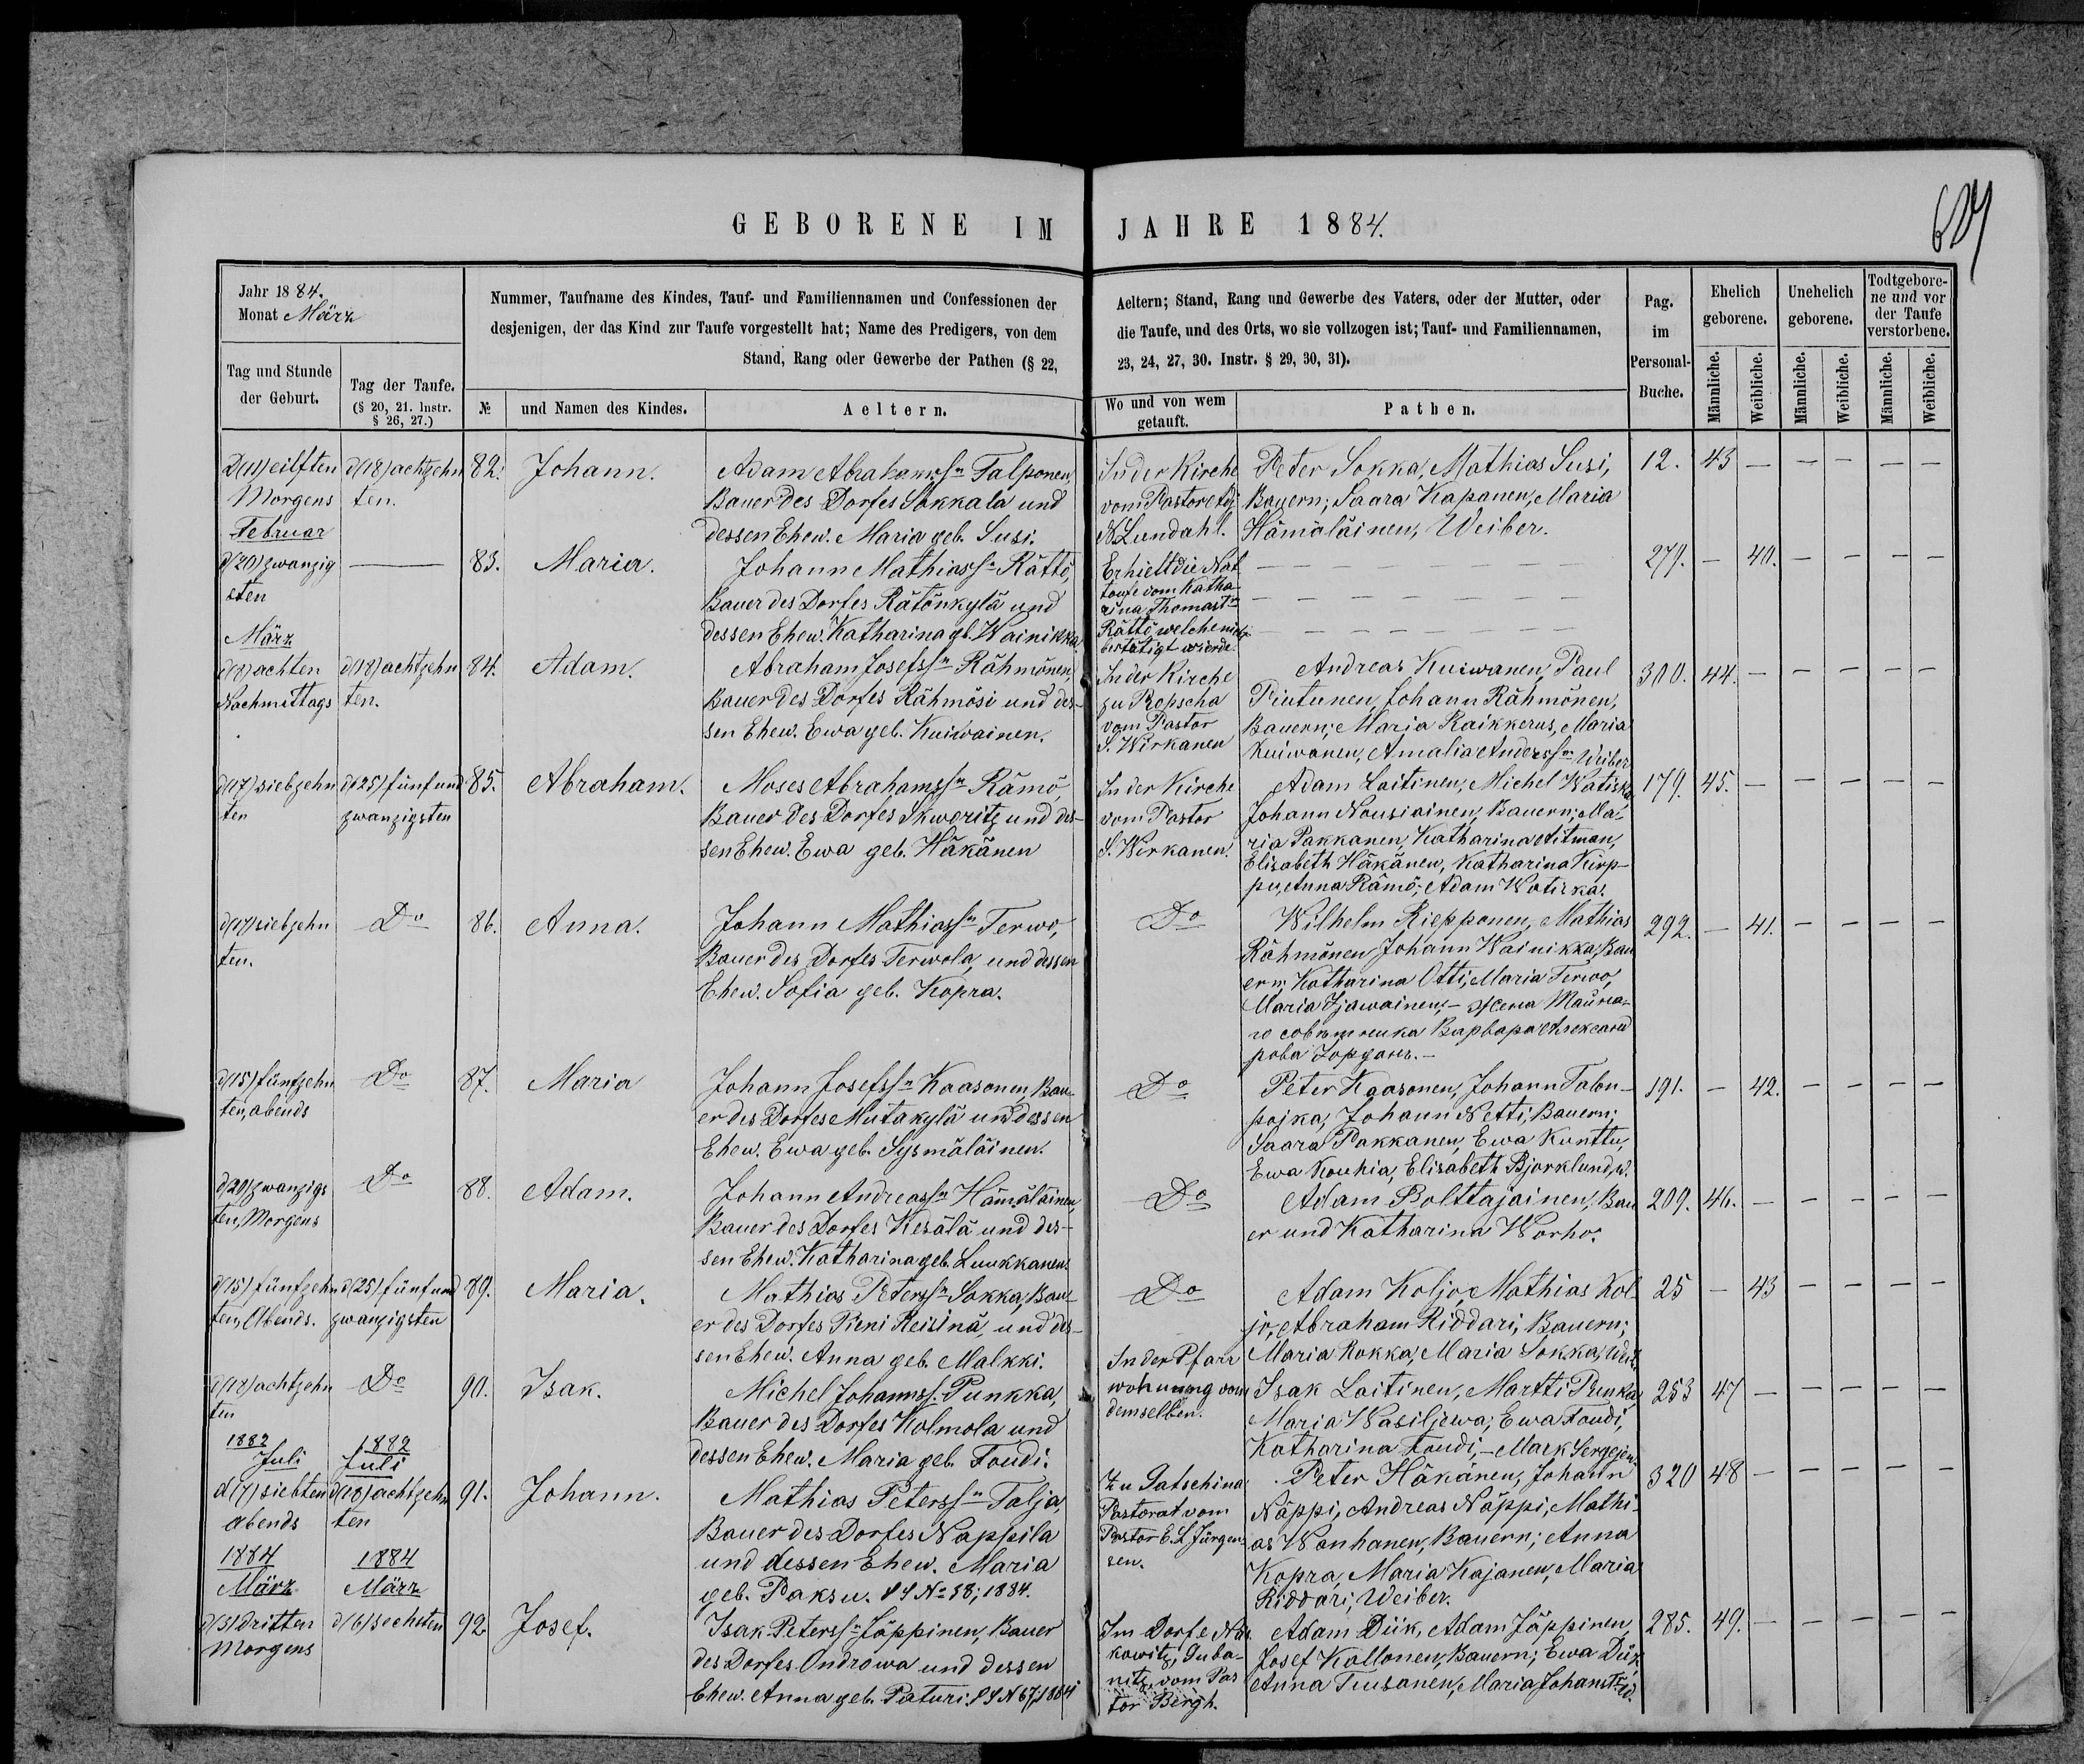 GEBORENE IM JAHRE 1884.
Jahr 1884.
Monat März
Tag und Stunde
der Geburt.
Tag der Taufe.
(§ 20, 21. Instr.
§ 26, 27.)
Nummer, Taufname des Kindes, Tauf- und Familiennamen und Confessionen der
desjenigen, der das Kind zur Taufe vorgestellt hat; Name des Predigers, von dem
Stand, Rang oder Gewerbe der Pathen (§ 22,
№
und Namen des Kindes.
Aeltern.
Aeltern; Stand, Rang und Gewerbe des Vaters, oder der Mutter, oder
die Taufe, und des Orts, wo sie vollzogen ist; Tauf- und Familiennamen,
23, 24, 27, 30. Instr. § 29, 30, 31).
Wo und von wem
getauft.
Pathen.
Pag.
im
Personal-
Buche.
Ehelich
geborene.
Unehelich
geborene.
Todtgebore-
ne und vor
der Taufe
verstorbene.
Männliche.
Weibliche.
Männliche.
Weibliche.
Männliche.
Weibliche.
D(11) eilften
Morgens
d(18) achtzehn
ten.
82.
Johann.
Adam Abrahamssn Talponen,
Bauer des Dorfes Sokkala und
dessen Ehew. Maria geb. Susi.
In der Kirche
vom Pastor
N. Lundahl.
Peter Sokka, Mathias Susi,
Bauern; Saara Kapanen, Maria
Hämäläinen, Weiber.
12.
43 — — — — —
Februar
d(20) zwanzig
sten
—
83.
Maria.
Johann Mathiassn Rättö,
Bauer des Dorfes Rätönkylä und
dessen Ehew. Katharina gb. Wainikka
Erhielt die Not
taufe vom Katha-
rina Thomastr
Rättö welche nicht
bestätigt wurde.
279.
— 40. — — — —
März
d(8) achten
Nachmittags
d(18) achtzehn
ten.
84.
Adam.
Abraham Josefssn Rähmönen,
Bauer des Dorfes Rähmösi und des-
sen Ehew. Ewa geb. Kuiwainen.
In der Kirche
zu Ropscha
vom Pastor
S. Wirkanen
Andreas Kuiwanen, Paul
Piutunen, Johann Rähmönen,
Bauern; Maria Raikkerus, Maria
Kuiwanen, Amalia Anderssn Weiber
300.
44. — — — — —
d(17) siebzehn
ten
d(25) fünf und
zwanzigsten
85.
Abraham.
Moses Abrahamssn Rämö,
Bauer des Dorfes Skworitz und des-
sen Ehew. Ewa geb. Häkänen
In der Kirche
vom Pastor
S. Wirkanen.
Adam Laitinen, Michel Watiska
Johann Nousiainen, Bauern; Ma-
ria Pakkanen, Katharina Aitman,
Elisabeth Häkänen, Katharina Kirp-
pu, Anna Rämö; Adam Watiska.
179.
45. — — — — —
d(17) siebzehn
ten.
Do
86.
Anna.
Johann Mathiassn Terwo,
Bauer des Dorfes Terwola, und dessen
Ehew. Sofia geb. Kopra.
Do
Wilhelm Riepponen, Mathias
Rähmönen, Johann Wainikka, Bau
ern; Katharina Otti, Maria Terwo,
Maria Ijawainen, – Жена
совѣтника Варвара Александ
рова Іорданъ. –
292.
— 41. — — — —
d(15) fünfzehn
ten, abends
Do
87.
Maria
Johann Josefssn Kaasonen, Bau-
er des Dorfes Mutakylä und dessen
Ehew. Ewa geb. Sysmäläinen.
Do
Peter Kaasonen, Johann Talon-
pojka, Johann Netti, Bauern;
Saara Pakkanen, Ewa Kunttu,
Ewa Kouhia, Elisabeth Bjorklund, W.
191.
— 42. — — — —
d(20) zwanzigs
ten, Morgens
Do
88.
Adam.
Johann Andreassn Hämäläinen,
Bauer des Dorfes Kesälä und des-
sen Ehew. Katharina geb. Luukkanen.
Do
Adam Bolttajainen, Bau
er und Katharina Worho.
209.
46. — — — — —
d(15) fünfzehn
ten, Abends.
d(25) fünf und
zwanzigsten
89.
Maria.
Mathias Peterssn Sokka, Bau-
er des Dorfes Pieni Reisinä, und des-
sen Ehew. Anna geb. Malkki.
Do
Adam Koljo, Mathias Kol
jo, Abraham Riddari, Bauern;
Maria Kokka, Maria Sokka, Wei.
25
— 43 — — — —
d(18) achtzehn
ten
Do
90.
Isak.
Michel Johannssn Punkka,
Bauer des Dorfes Holmola und
dessen Ehew. Maria geb. Toudi.
In der Pfarr
wohnung vom
demselben.
Isak Laitinen, Martti Punka,
Maria Wasiljewa; Ewa Toudi,
Katharina Toudi, – Mark Sergejew.
253
47 — — — — —
1882
Juli
1882
Juli
d(7) siebten
abends
d(18) achtzehn
ten
91.
Johann.
Mathias Peterssn Talja,
Bauer des Dorfes Nappila
und dessen Ehew. Maria
geb. Paksu. № 38; 1884.
Zu Gatschina
Pastorat vom
Pastor E. L. Jürgen-
sen.
Peter Häkänen, Johann
Näppi, Andreas Näppi, Mathi-
as Wanhanen, Bauern; Anna
Kopra, Maria Kajanen, Maria
Riddari, Weiber.
320
48 — — — — —
1884
März
1884
März
d(3) dritten
Morgens
d(6) sechsten
92.
Josef.
Isak Peterssn Jäppinen, Bauer
des Dorfes Ondrowa und dessen
Ehew. Anna geb. Paturi. N 67, 1884
Im Dorfe Nas
kowitz, Guba-
nitz, vom Pas
tor Bergh.
Adam Diik, Adam Jäppinen,
Josef Kallonen, Bauern; Ewa Diik,
Anna Tiusanen, Maria Johanstr W.
285.
49. — — — — —